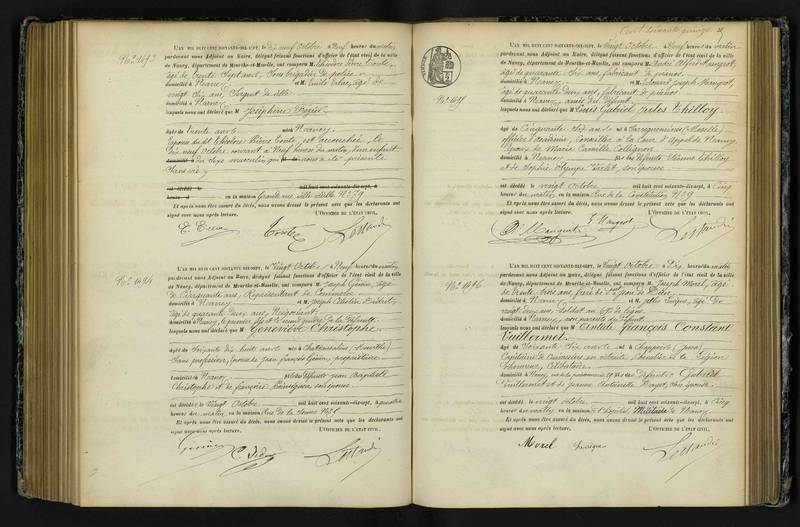 Nº 1493
L'AN MIL HUIT CENT SOIXANTE-DIX-SEPT, le dix neuf Octobre à Neuf heures du matin
pardevant nous Adjoint au Maire, délégué faisant fonctions d'officier de l'état civil de la ville
de Nancy, département de Meurthe-et-Moselle, ont comparu M. Théodore Pierre
âgé de trente sept ans, Sous brigadier de police
domicilié à Nancy et M. Emile âgé de
vingt six ans, Sergent de ville
domicilié à Nancy
lesquels nous ont déclaré que M Joséphine
âgé de trente ans né à Nancy
Epouse du dit Théodore Pierre est accouchée, le
dix neuf Octobre, courant à Neuf heures du matin, d'un enfant
domicilié à du sexe masculin qui nous a été présenté
Sans vie
est décédé le mil huit cent soixante-dix-sept, à
heures d en la maison Grande rue ville vieille Nº 39
Et après nous être assuré du décès, nous avons dressé le présent acte que les déclarants ont
signé avec nous après lecture. L'OFFICIER DE L'ÉTAT CIVIL,
Nº 1494
L'AN MIL HUIT CENT SOIXANTE-DIX-SEPT, le Vingt Octobre à Neuf heures du matin
pardevant nous Adjoint au Maire, délégué faisant fonctions d'officier de l'état civil de la ville
de Nancy, département de Meurthe-et-Moselle, ont comparu M. Joseph Génin, âgé
de Cinquante ans, Représentant de Commerce
domicilié à Nancy et M. Joseph Célestin
âgé de quarante deux ans, Négociant
domicilié à Nancy, le premier fils et le second gendre de la défunte
lesquels nous ont déclaré que M Geneviève Christophe
âgée de Soixante dix huit ans née à Chateausalins (Meurthe)
Sans profession, épouse de Jean François Génin, propriétaire
domiciliée à Nancy fille des défunts Jean
Christophe et de Françoise son épouse
est décédée le vingt Octobre mil huit cent soixante-dix-sept, à quatre
heures du matin, en la maison Rue de la
Et après nous être assuré du décès, nous avons dressé le présent acte que les déclarants ont
signé avec nous après lecture. L'OFFICIER DE L'ÉTAT CIVIL,
Génin
Cent soixante quinze
Nº 1495
L'AN MIL HUIT CENT SOIXANTE-DIX-SEPT, le Vingt Octobre à Neuf heures du matin
pardevant nous Adjoint au Maire, délégué faisant fonctions d'officier de l'état civil de la ville
de Nancy, département de Meurthe-et-Moselle, ont comparu M. Alfred Mangeot,
âgé de quarante six ans, fabricant de pianos
domicilié à Nancy et M. Edouard Joseph Mangeot,
âgé de quarante deux ans, fabricant de pianos
domicilié à Nancy, amis du défunt
lesquels nous ont déclaré que M Louis Gabriel Jules Thilloy
âgé de Cinquante six ans né à Sarreguemines (Moselle)
officier d'académie, Conseiller à la Cour d'Appel de Nancy
Epoux de Marie Camille Collignon
domicilié à Nancy fils des défunts Etienne Thilloy
et de Sophie Olympe son épouse
est décédé le vingt Octobre mil huit cent soixante-dix-sept, à Cinq
heures du matin, en la maison Rue de la Constitution Nº 9
Et après nous être assuré du décès, nous avons dressé le présent acte que les déclarants ont
signé avec nous après lecture. L'OFFICIER DE L'ÉTAT CIVIL,
Mangeot
Mangeot
Nº 1496
L'AN MIL HUIT CENT SOIXANTE-DIX-SEPT, le Vingt Octobre à Dix heures du matin
pardevant nous Adjoint au Maire, délégué faisant fonctions d'officier de l'état civil de la ville
de Nancy, département de Meurthe-et-Moselle, ont comparu M. Joseph Morel, âgé
de trente trois ans,
domicilié à Nancy et M. âgé de
vingt deux ans, Soldat au de ligne
domicilié à Nancy, non parents du défunt
lesquels nous ont déclaré que M François Constant
Vuillermet
âgé de Soixante dix ans né à (Jura)
Capitaine de Cuirassiers en retraite Chevalier de la Légion
d'honneur, Célibataire
domicilié à Nancy fils des défunts
Vuillermet et de Jeanne Antoinette son épouse
est décédé le vingt octobre mil huit cent soixante-dix-sept, à Cinq
heures du matin, en la maison à l'hôpital Militaire de Nancy
Et après nous être assuré du décès, nous avons dressé le présent acte que les déclarants ont
signé avec nous après lecture. L'OFFICIER DE L'ÉTAT CIVIL,
Morel